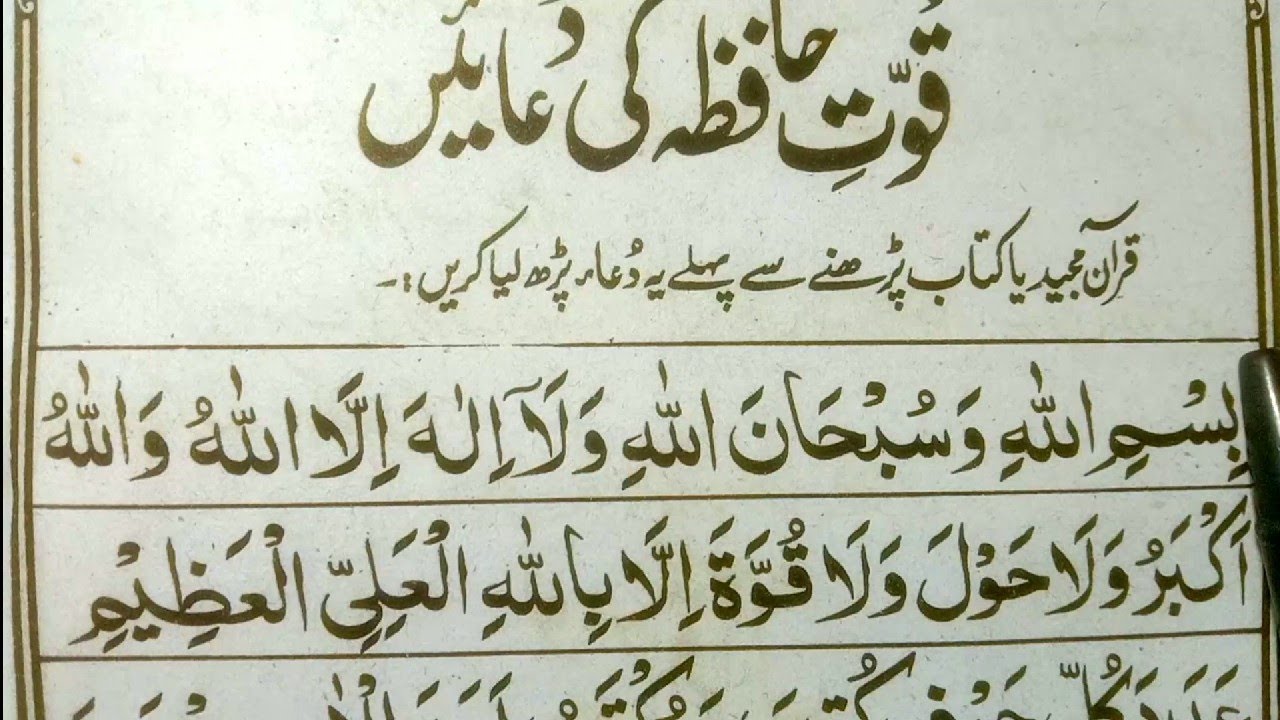 قُوّتِ حافظہ کی دعائیں
قرآن مجید یا کتاب پڑھنے سے پہلے یہ دُعاء پڑھ لیا کریں :۔
بِسْمِ اللّٰهِ وَسُبْحَانَ اللّٰهِ وَلَآ اِلٰهَ اِلَّا اللّٰهُ وَاللّٰهُ
اَكْبَرُ وَلَا حَوْلَ وَلَا قُوَّةَ اِلَّا بِاللّٰهِ الْعَلِیِّ الْعَظِیْمِ
عَدَدَ كُلِّ حَرْفٍ كُتِبَ